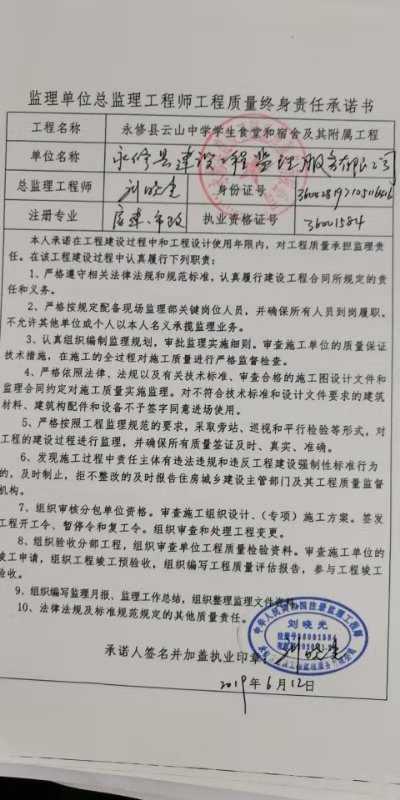 监理单位总监理工程师工程质量终身责任承诺书
工程名称 永修县云山中学学生食堂和宿舍及其附属工程
单位名称 永修县建设工程监理服务有限公司
总监理工程师 刘晓光 身份证号
注册专业 房建、市政 执业资格证号 36001584
本人承诺在工程建设过程中和工程设计使用年限内，对工程质量承担监理责
任。在该工程建设过程中认真履行下列职责：
1、严格遵守相关法律法规和规范标准，认真履行建设工程合同所规定的责
任和义务。
2、严格按规定配备现场监理部关键岗位人员，并确保所有人员到岗履职。
不允许其他单位或个人以本人名义承揽监理业务。
3、认真组织编制监理规划，审批监理实施细则。审查施工单位的质量保证
技术措施，在施工的全过程对施工质量进行严格监督检查。
4、严格依照法律、法规以及有关技术标准、审查合格的施工图设计文件和
监理合同约定对施工质量实施监理。对不符合技术标准和设计文件要求的建筑
材料、建筑构配件和设备不予签字同意进场使用。
5、严格按照工程监理规范的要求，采取旁站、巡视和平行检验等形式，对
工程的建设过程进行监理，并确保所有质量签证及时、真实、准确。
6、发现施工过程中责任主体有违法违规和违反工程建设强制性标准行为
的，及时制止，拒不整改的及时报告住房城乡建设主管部门及其工程质量监督
机构。
7、组织审核分包单位资格。审查施工组织设计、（专项）施工方案。签发
工程开工令、暂停令和复工令。组织审查和处理工程变更。
8、组织验收分部工程，组织审查单位工程质量检验资料。审查施工单位的
竣工申请，组织工程竣工预验收，组织编写工程质量评估报告，参与工程竣工
验收。
9、组织编写监理月报、监理工作总结，组织整理监理文件资料。
10、法律法规及标准规范规定的其他质量责任。
中华人民共和国注册监理工程师
刘晓光
注册号36001584
承诺人签名并加盖执业印章：刘晓光
2019年6月12日